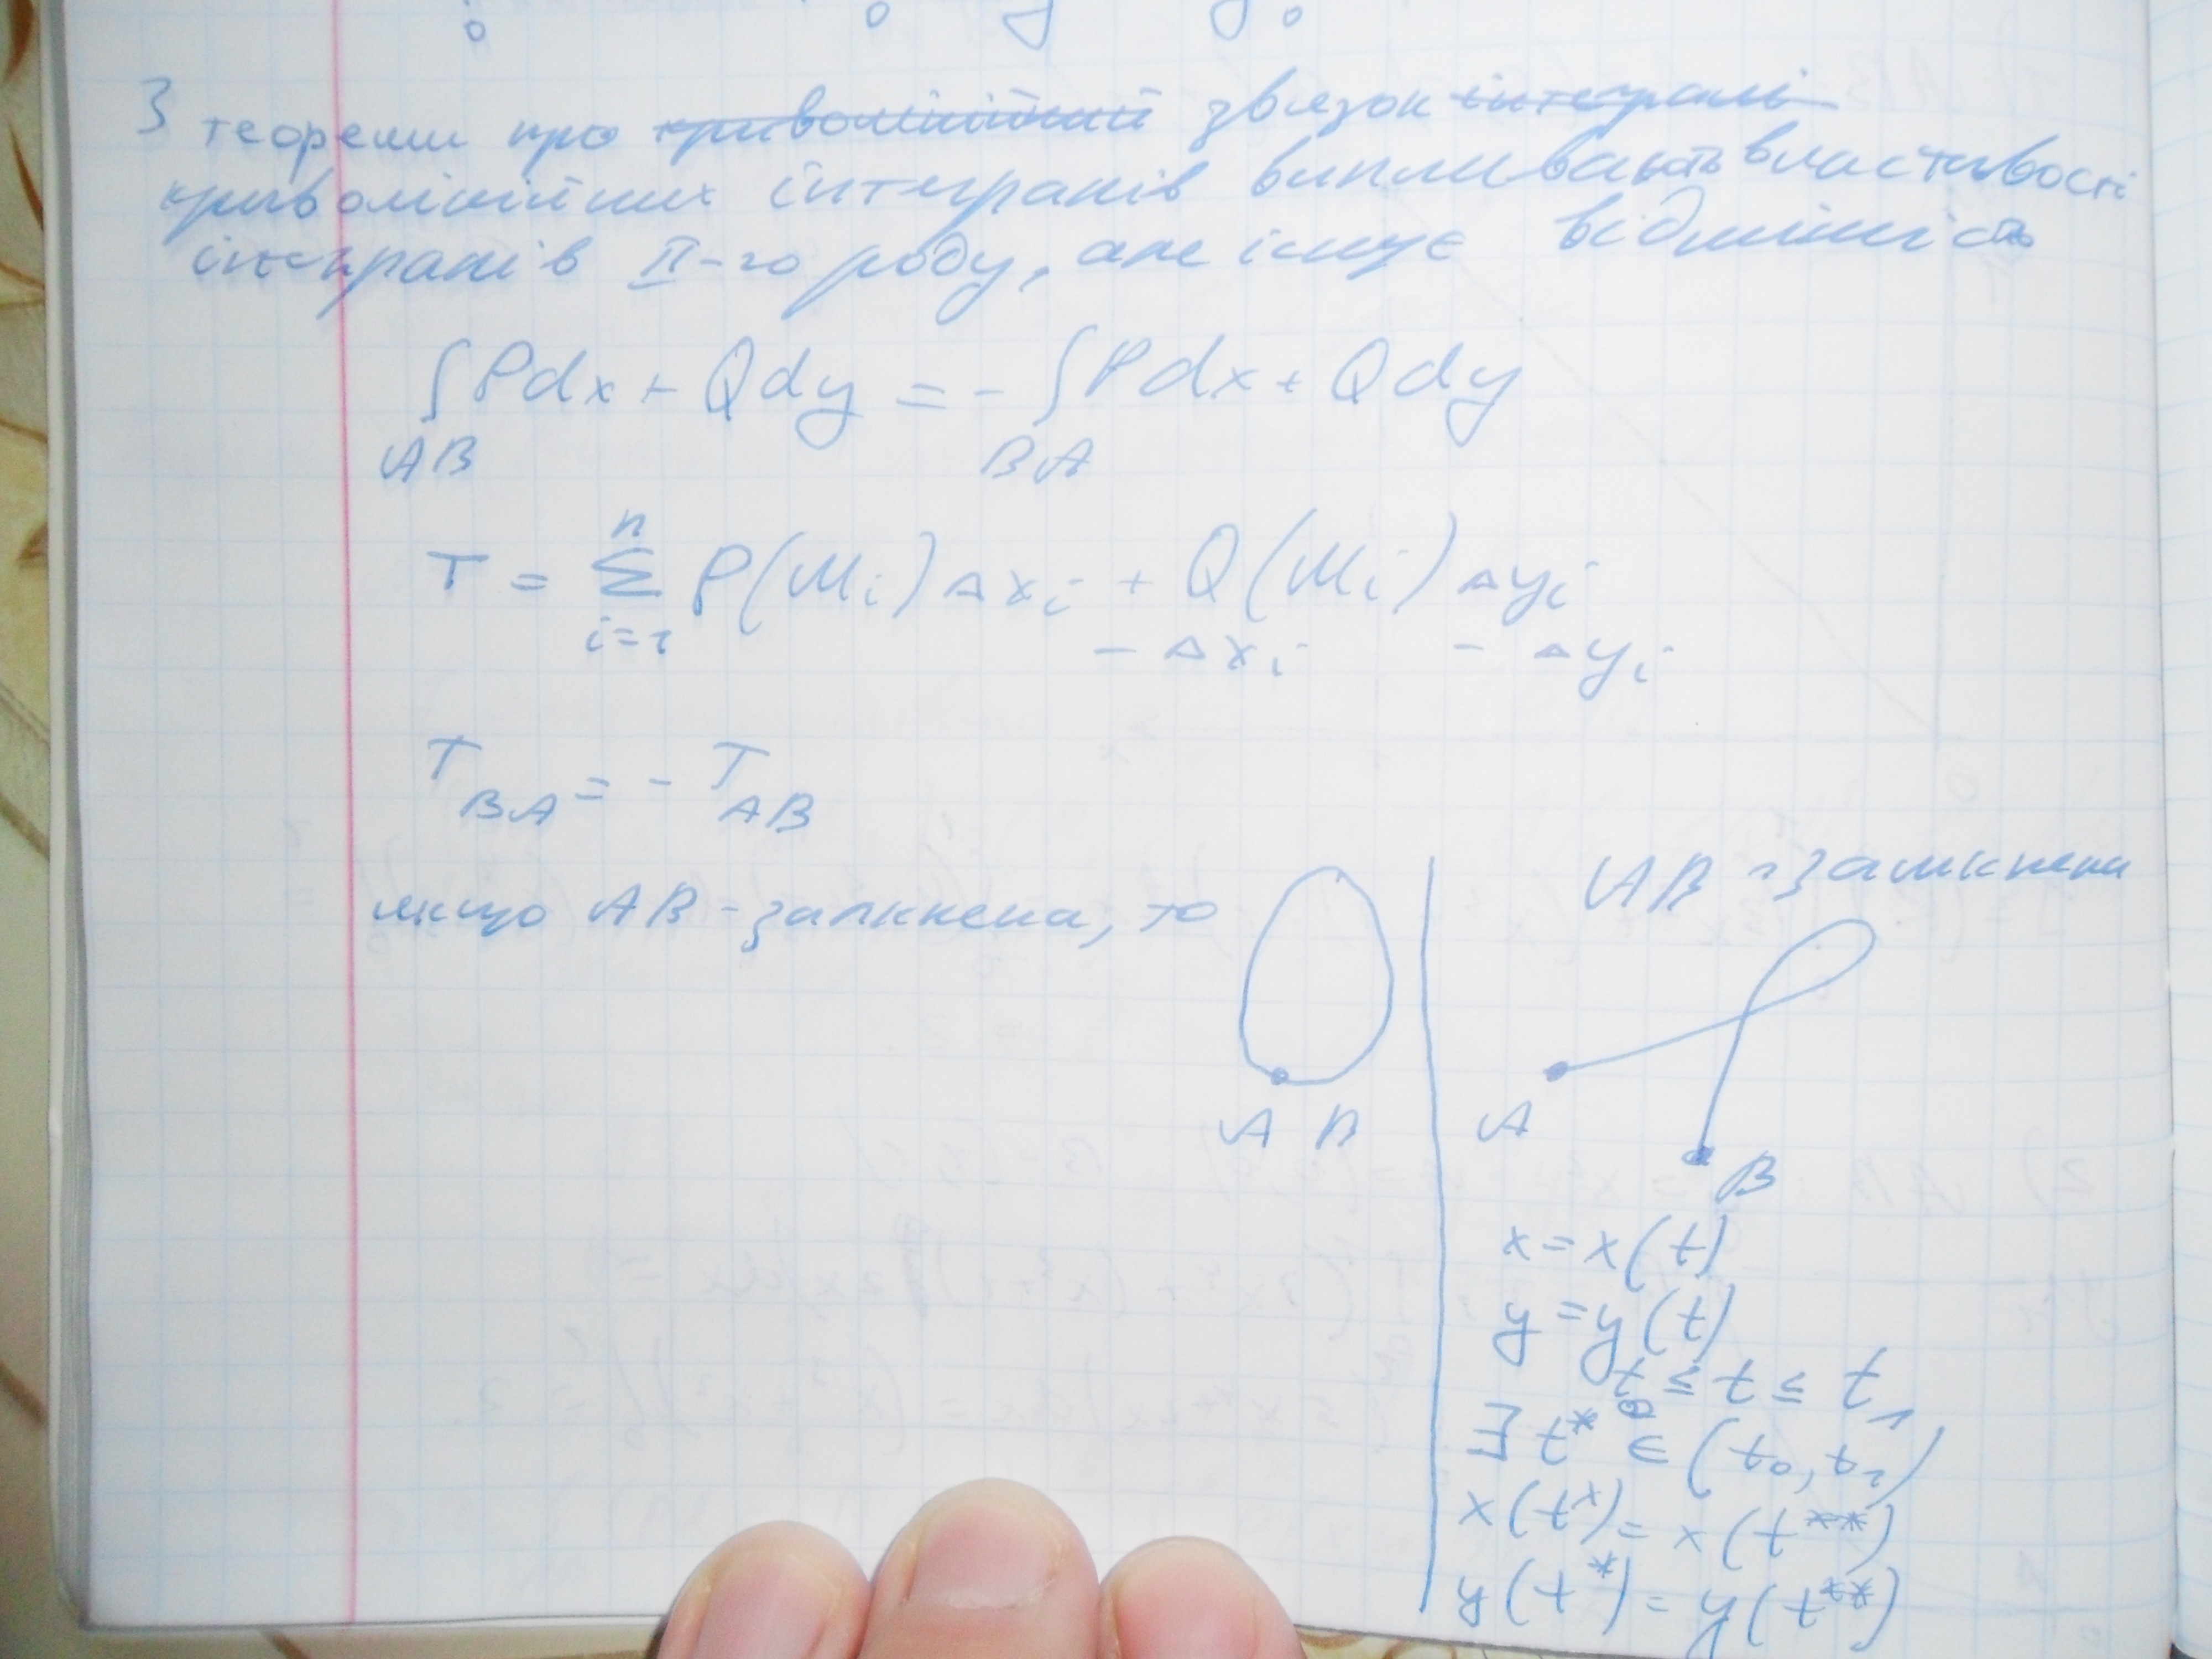 З теореми про криволінійний звязок інтегралі
криволінійних інтегралів випливають властивості
інтегралів II-го роду, але існує відмінність
∫ Pdx + Qdy = - ∫ Pdx + Qdy
AB BA
T = n Σ i=1 P(Mi) Δxi + Q(Mi) Δyi
- Δxi - Δyi
T BA = - T AB
якщо AB - замкнена, то
A B
AB - замкнена
A
B
x = x(t)
y = y(t)
t0 ≤ t ≤ t1
∃ t* ∈ (t0, t1)
x(t*) = x(t**)
y(t*) = y(t**)